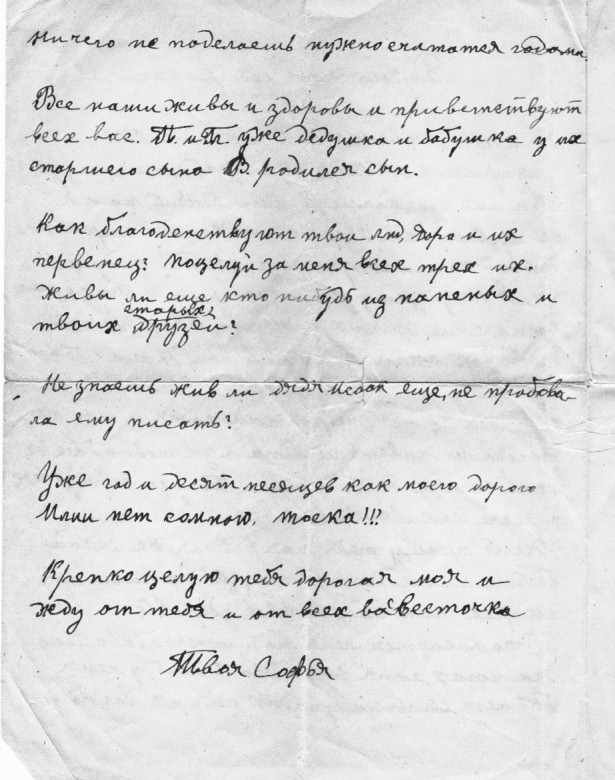 ничего не поделаешь нужно считатся годами
Все наши живы и здоровы и приветствуют
всех вас. П. и П. уже дедушка и бабушка у их
старшего сына В. родился сын.
Как благоденствуют твои Люд, Дора и их
первенец? поцелуй за меня всех трех их.
Живы ли еще кто нибудь из папеных и
старых
твоих друзей?
Не знаешь жив ли дядя Исаак еще, не пробова-
ла ему писать?
Уже год и десят месяцев как моего дорого
Илии нет сомною, тоска!!!?
Крепко целую тебя дорогая моя и
жду от тебя и от всех ва весточка
Твоя Софья